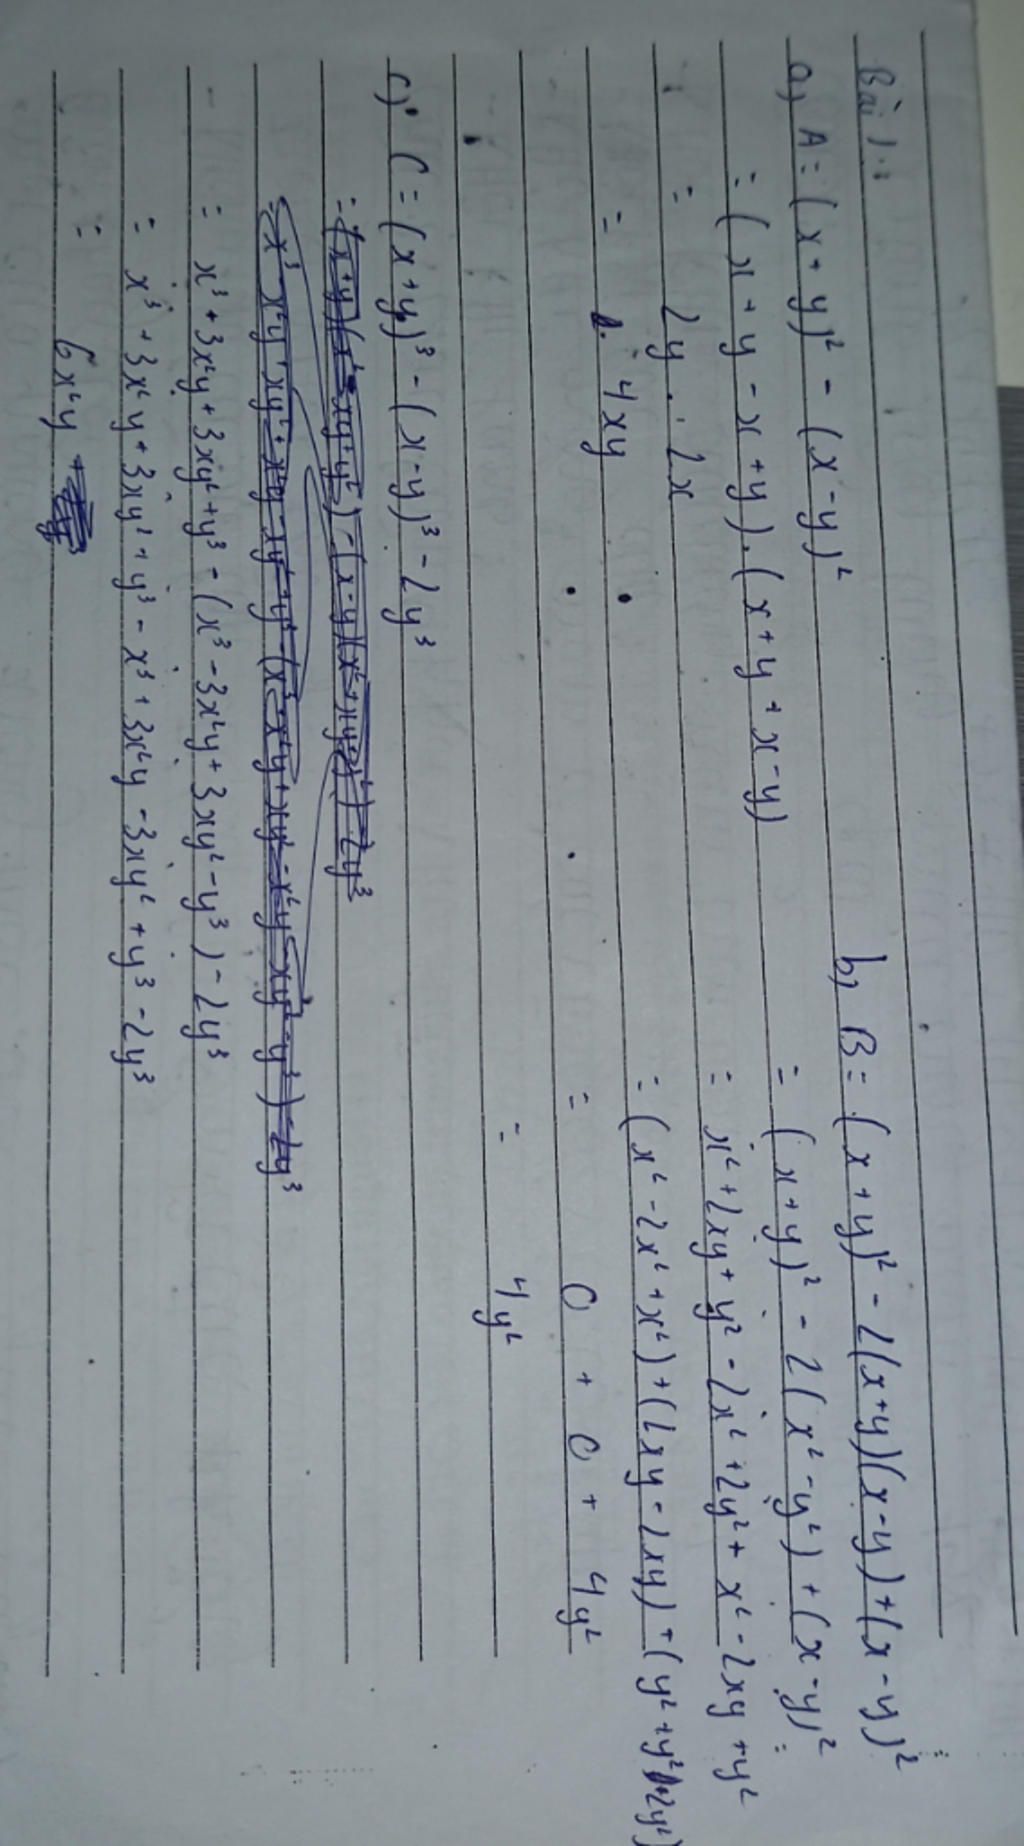 Bài 1:
a, A = (x + y)² - (x - y)²
= (x + y - x + y).(x + y + x - y)
= 2y . 2x
= 4xy
b, B = (x + y)² - 2(x+y)(x-y) + (x - y)²
= (x+y)² - 2(x² - y²) + (x - y)²
= x² + 2xy + y² - 2x² + 2y² + x² - 2xy + y²
= (x² - 2x² + x²) + (2xy - 2xy) + (y² + y² + 2y²)
= 0 + 0 + 4y²
= 4y²
c, C = (x + y)³ - (x - y)³ - 2y³
= x³ + 3x²y + 3xy² + y³ - (x³ - 3x²y + 3xy² - y³) - 2y³
= x³ + 3x²y + 3xy² + y³ - x³ + 3x²y - 3xy² + y³ - 2y³
= 6x²y